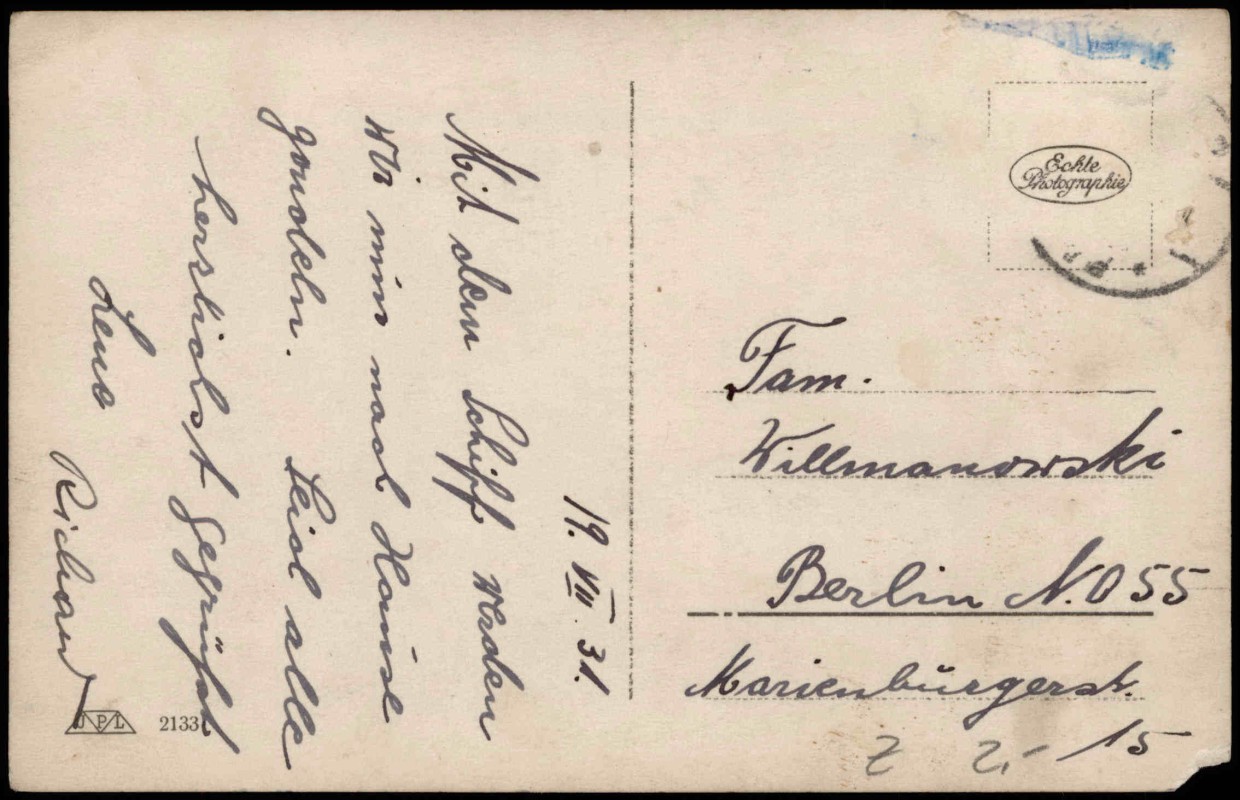 19. VIII. 31.
Mit dem Schiff werden
wir nun nach Hause
gondeln. Seid alle
herzlichst gegrüßt
Richard
Echte
Photographie
Fam.
Willmanowski
Berlin N.O 55
Marienbürgerst.
15
Z 2,-
JPL 2133